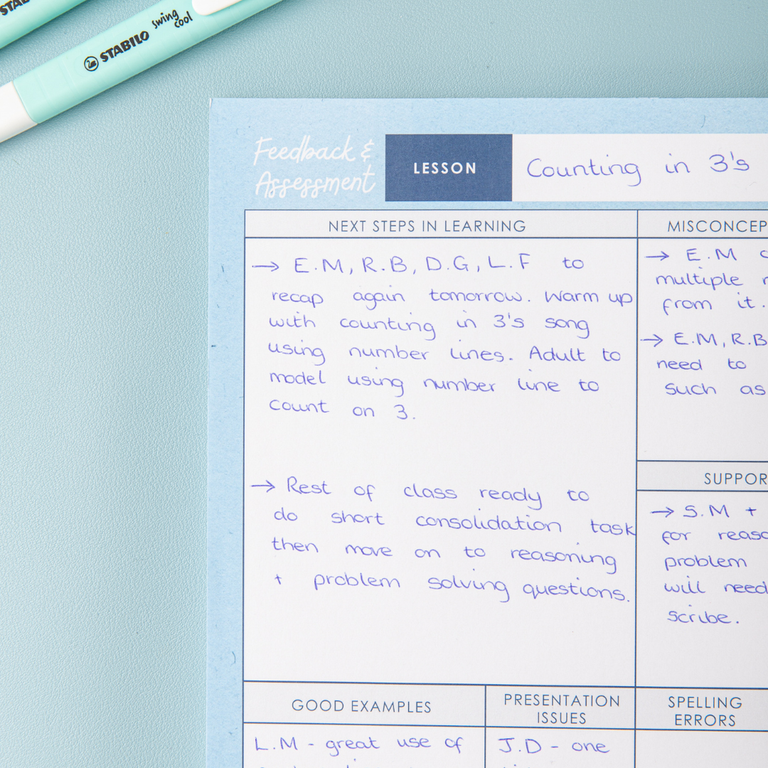 STAB
STABILO swing cool
Feedback &
Assessment
LESSON
Counting in 3's
NEXT STEPS IN LEARNING
→ E.M, R.B, D.G, L.F to
recap again tomorrow. Warm up
with counting in 3's song
using number lines. Adult to
model using number line to
count on 3.
→ Rest of class ready to
do short consolidation task
then move on to reasoning
+ problem solving questions.
MISCONCEP
→ E.M
multiple
from it.
→ E.M, R.B
need to
such as
SUPPOR
→ S.M +
for reaso
problem
will need
scribe.
GOOD EXAMPLES
L.M - great use of
PRESENTATION
ISSUES
J.D - one
SPELLING
ERRORS